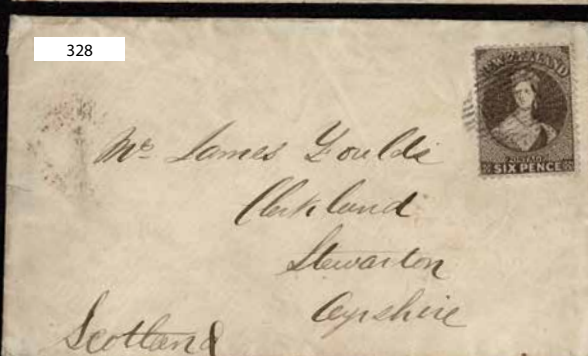 328
NEW ZEALAND
POSTAGE
SIX PENCE
Mr James Foulds
Clerkland
Stewarton
Ayrshire
Scotland